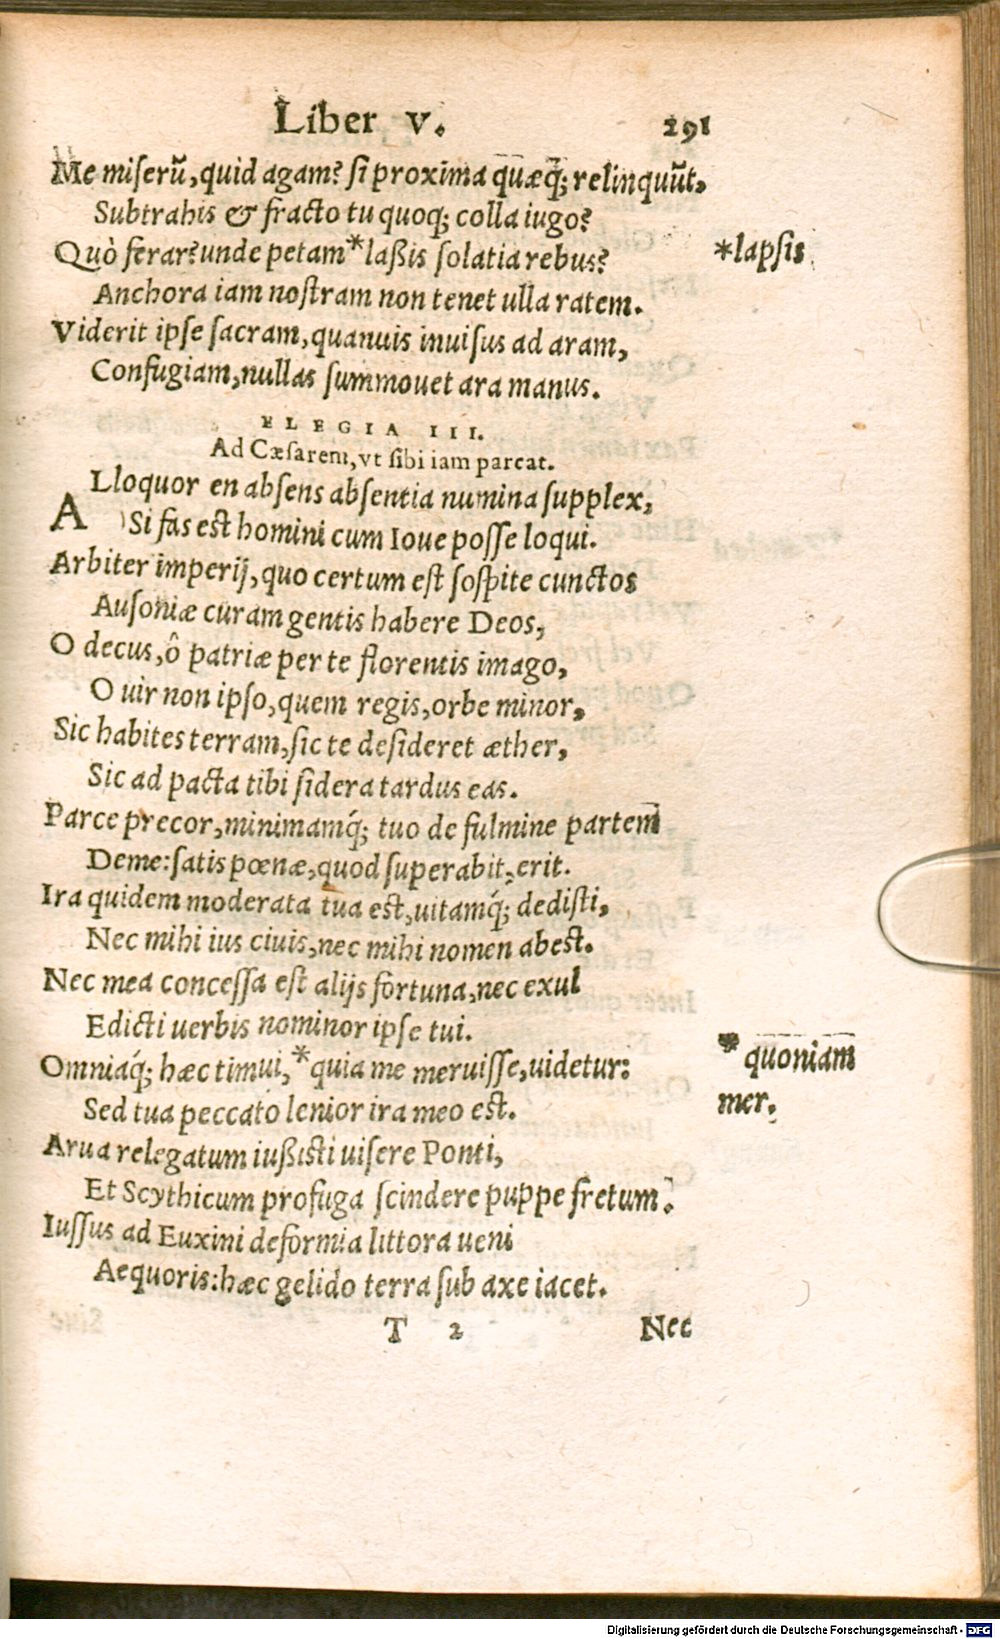 Liber V. 291
Me miserũ, quid agam? si proxima quæq́; relinquũt,
Subtrahis & fracto tu quoq; colla iugo?
Quò ferar? unde petam *laßis solatia rebus? *lapsis
Anchora iam nostram non tenet ulla ratem.
Viderit ipse sacram, quanuis inuisus ad aram,
Confugiam, nullas summouet ara manus.
ELEGIA III.
Ad Cæsarem, vt sibi iam parcat.
ALloquor en absens absentia numina supplex,
Si fas est homini cum Ioue posse loqui.
Arbiter imperij, quo certum est sospite cunctos
Ausoniæ curam gentis habere Deos,
O decus, ô patriæ per te florentis imago,
O uir non ipso, quem regis, orbe minor,
Sic habites terram, sic te desideret æther,
Sic ad pacta tibi sidera tardus eas.
Parce precor, minimamq́; tuo de fulmine partem
Deme: satis pœnæ, quod superabit, erit.
Ira quidem moderata tua est, uitamq́; dedisti,
Nec mihi ius ciuis, nec mihi nomen abest.
Nec mea concessa est alijs fortuna, nec exul
Edicti uerbis nominor ipse tui.
Omniaq́; hæc timui, *quia me meruisse, uidetur: * quoniam
Sed tua peccato lenior ira meo est. mer.
Arua relegatum iußisti uisere Ponti,
Et Scythicum profuga scindere puppe fretum.
Iussus ad Euxini deformia littora ueni
Aequoris: hæc gelido terra sub axe iacet.
T 2 Nec
Digitalisierung gefördert durch die Deutsche Forschungsgemeinschaft - DFG